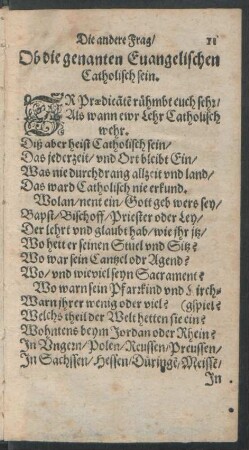 Die andere Frag/ 21
Ob die genanten Euangelischen
Catholisch sein.
IR Prædicātē rühmbt euch sehr/
Als wann ewr Lehr Catholisch
wehr.
Diß aber heist Catholisch sein/
Das jederzeit/ vnd Ort bleibt Ein/
Was nie durchdrang allzeit vnd land/
Das ward Catholisch nie erkund.
Wolan/ nent ein/ Gott geb wers sey/
Bapst/ Bischoff/ Priester oder Ley/
Der lehrt vnd glaubt hab/ wie ihr jtz/
Wo heit er seinen Stuel vnd Sitz?
Wo war sein Cantzel odr Agend?
Wo/ vnd wieviel seyn Sacrament?
Wo warn sein Pfarrkind vnd Kirch-
Warn jhrer wenig oder viel? (gspiel?
Welchs theil der Welt hetten sie ein?
Wohntens beym Jordan oder Rhein?
In Vngern/ Polen/ Reussen/ Preussen/
In Sachssen/ Hessen/ Dūringē/ Meissē/
In